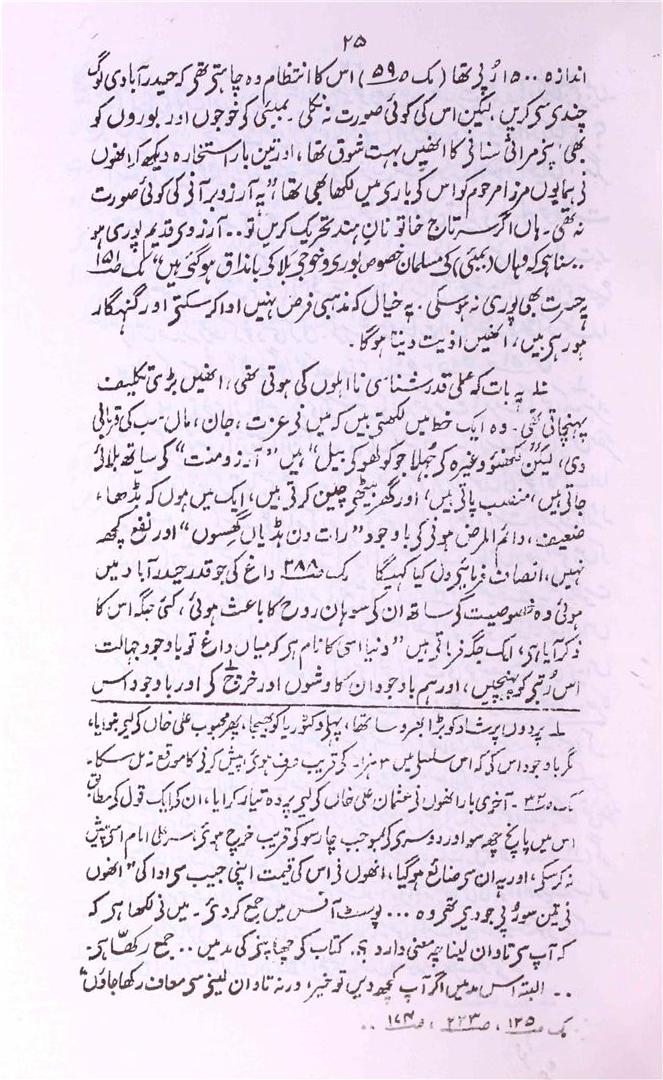 ۲۵
اندازہ ۱۵۰۰ رُپی تھا (مک ص۵۹) اس کا انتظام وہ چاہتی تھی کہ حیدرآبادی لوگ
چندی سی کریں لیکن اس کی کوئی صورت نہ نکلی۔ بمبئی کو خوجوں اور بوروں کو
بھی اپنی مراثی سنانی کا انھیں بہت شوق تھا، اور تین بار استخارہ دیکھ کر انھوں
نی ہمایوں مرزا مرحوم کو اس کی باری میں لکھا بھی تھا، "یہ آرزو بر آنی کی کوئی صورت
نہ تھی۔ ہاں اگر سرتاج خاتونانِ ہند تحریک کریں تو.. آرزوی قدیم پوری ہو
.. سنا ہی کہ وہاں (بمبئی) کی مسلمان خصوص بوری و خوجی بلا کی بامذاق ہو گئی ہیں" مک ص۱۵۱
یہ حسرت بھی پوری نہ ہو سکی۔ یہ خیال کہ مذہبی فرض نہیں ادا کر سکتی اور گنہگار
ہو رہی ہیں، انھیں اذیت دیتا ہوگا۔
۱؎ یہ بات کہ عملی قدر شناسی نااہلوں کی ہوتی تھی، انھیں بڑی تکلیف
پہنچاتی تھی۔ وہ ایک خط میں لکھتی ہیں کہ میں نی عزت، جان، مال۔ سب کی قربانی
دی، لیکن لکھنؤ وغیرہ کی جُہلا جو کولھو کی بیل" ہیں "آرزو و منت" کی ساتھ بلائی
جاتی ہیں، منصب پاتی ہیں، اور گھر بیٹھی چین کرتی ہیں، ایک میں ہوں کہ بڈھا،
ضعیف، دائم المرض ہونی کی باوجود "رات دن ہڈیاں گھسوں" اور نفع کچھ
نہیں، انصاف فرمائی دل کیا کہیگا مک ص۲۸۸ داغ کی جو قدر حیدرآباد میں
ہوئی وہ خصوصیت کی ساتھ ان کی سوہانِ روح کا باعث ہوئی، کئی جگہ اس کا
ذکر آیا ہی، ایک جگہ فرماتی ہیں "دنیا اسی کا نام ہی کہ میاں داغ تو باوجود جہالت
اس رُتبی کو پہنچیں، اور ہم باوجود ان کاوشوں اور خروج کی اور باوجود اس
۱؎ پردوں پر شاد کو بڑا بھروسا تھا، پہلی وکٹوریا کو بھیجا، پھر محبوب علی خاں کی لیی بنوایا،
مگر باوجود اس کی کہ اس سلسلی میں ۳ ہزار کی قریب صرف ہوئی پیش کرنی کا موقع نہ مل سکا۔
مک ص۳۳۔ آخری بار انھوں نی عثمان علی خاں کی لیی پردہ تیار کرایا، ان کی ایک قول کی مطابق
اس میں پانچ چھ سو اور دوسری کی بموجب چار سو کی قریب خرچ ہوئی، سر علی امام اسی پیش
نہ کر سکی، اور یہ ان سی ضائع ہو گیا، انھوں نی اس کی قیمت اپنی جیب سی ادا کی "انھوں
نی تین سو رُپی جو دیی تھی وہ ... پوسٹ آفس میں جمع کر دیی۔ میں نی لکھا ہی کہ
کہ آپ سی تاوان لینا چہ معنی دارد ؟. کتاب کی چھاپنی کی مد میں .. جمع رکھا ہی۔
.. البتہ اس مد میں اگر آپ کچھ دیں تو خیر، ورنہ تاوان لینی سی معاف رکھا جاؤں"
مک ص۱۲۵، ص۲۲۳، ص۱۷۴ ..